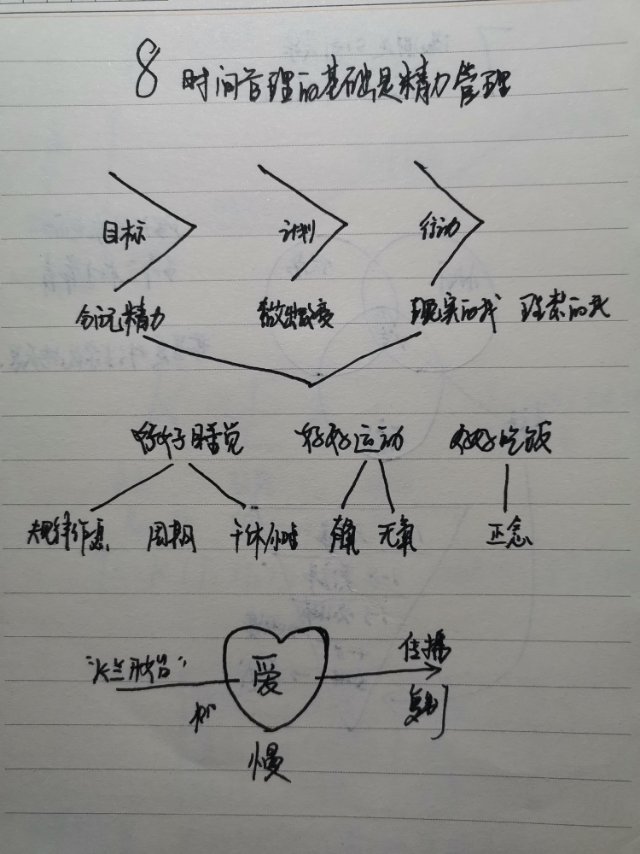 8 时间管理的基础是精力管理
目标 计划 行动
分配精力 做出改变 现实的我 理想的我
好好睡觉 好好运动 好好吃饭
规律作息 周期 午休小时 有氧 无氧 正念
爱 传播
慢